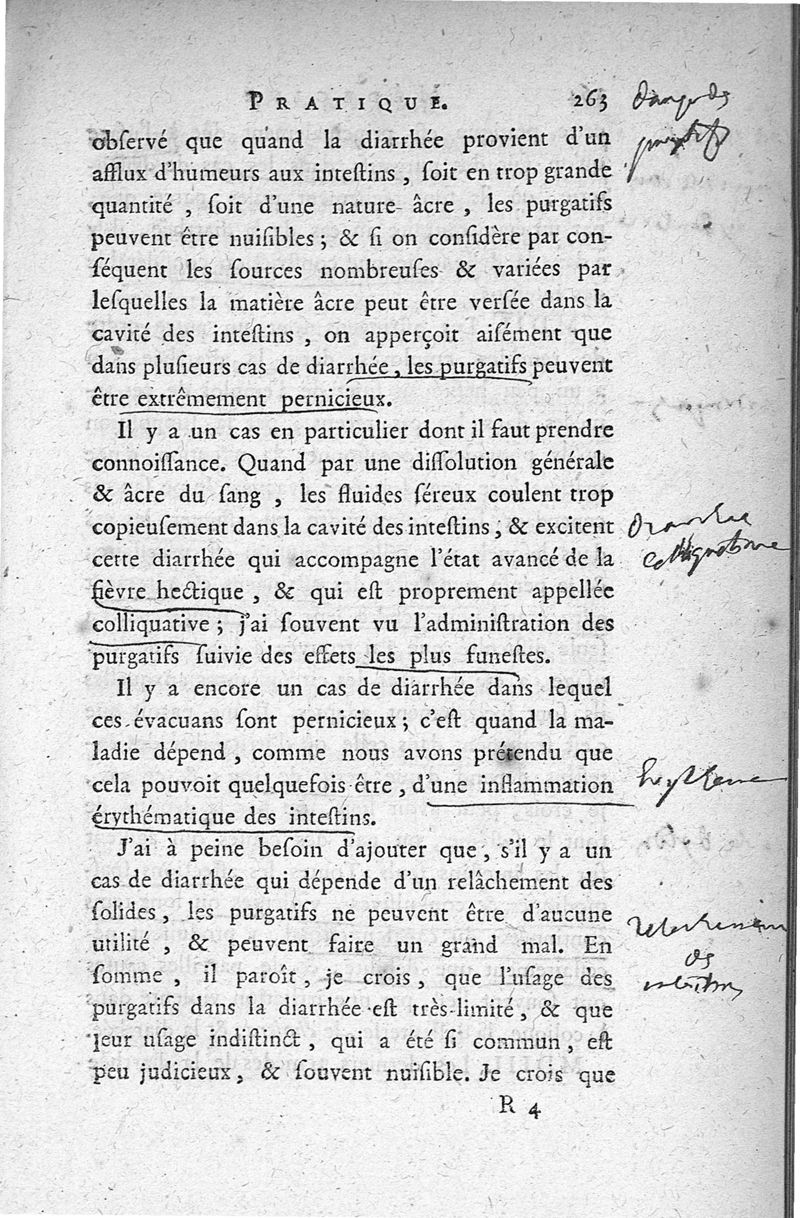 PRATIQUE. 263
obſervé que quand la diarrhée provient d'un
afflux d'humeurs aux inteſtins, ſoit en trop grande
quantité, ſoit d'une nature âcre, les purgatifs
peuvent être nuiſibles; & ſi on conſidère par con-
ſéquent les ſources nombreuſes & variées par
leſquelles la matière âcre peut être verſée dans la
cavité des inteſtins, on apperçoit aiſément que
dans pluſieurs cas de diarrhée, les purgatifs peuvent
être extrêmement pernicieux.
Il y a un cas en particulier dont il faut prendre
connoiſſance. Quand par une diſſolution générale
& âcre du ſang, les fluides ſéreux coulent trop
copieuſement dans la cavité des inteſtins, & excitent
cette diarrhée qui accompagne l'état avancé de la
fièvre hectique, & qui eſt proprement appellée
colliquative; j'ai ſouvent vu l'adminiſtration des
purgatifs ſuivie des effets les plus funeſtes.
Il y a encore un cas de diarrhée dans lequel
ces évacuans ſont pernicieux; c'eſt quand la ma-
ladie dépend, comme nous avons prétendu que
cela pouvoit quelquefois être, d'une inflammation
érythématique des inteſtins.
J'ai à peine beſoin d'ajouter que, s'il y a un
cas de diarrhée qui dépende d'un relâchement des
ſolides, les purgatifs ne peuvent être d'aucune
utilité, & peuvent faire un grand mal. En
ſomme, il paroît, je crois, que l'uſage des
purgatifs dans la diarrhée eſt très-limité, & que
leur uſage indiſtinct, qui a été ſi commun, eſt
peu judicieux, & ſouvent nuiſible. Je crois que
R 4